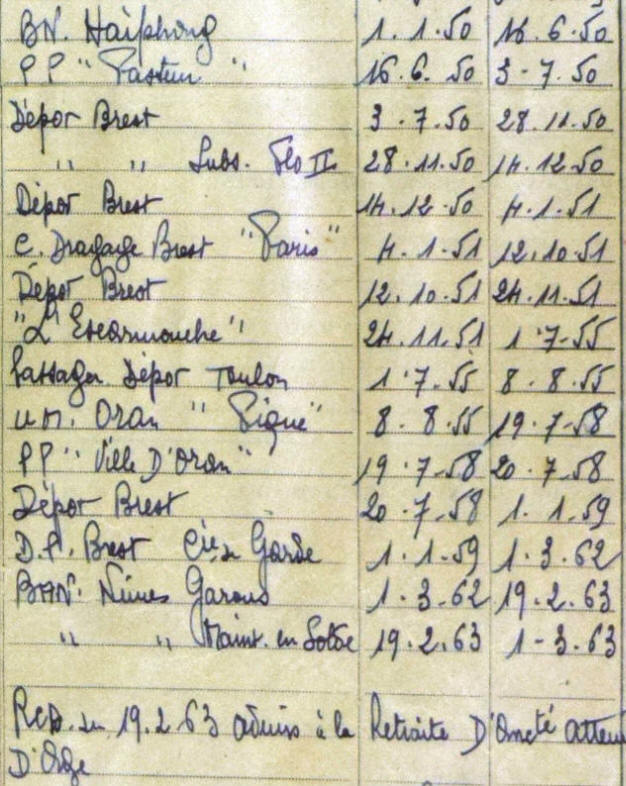 BN. Haïphong 1.1.50 16.6.50
PP "Pasteur" 16.6.50 3-7.50
Dépot Brest 3.7.50 28.11.50
" " Subs. Flo II 28.11.50 14.12.50
Dépot Brest 14.12.50 4.1.51
C. Dragage Brest "Paris" 4.1.51 12.10.51
Dépot Brest 12.10.51 24.11.51
"L'Escarmouche" 24.11.51 1.7.55
Passager Dépot Toulon 1.7.55 8.8.55
U.M. Oran "Pique" 8.8.55 19.7.58
PP "Ville D'Oran" 19.7.58 20.7.58
Dépot Brest 20.7.58 1.1.59
D.P. Brest Cie de Garde 1.1.59 1.3.62
BAN. Nimes Garons 1.3.62 19.2.63
" " Maint. en Solde 19.2.63 1-3.63
du 19.2.63 admis à la Retraite D'Ancté
D'Age